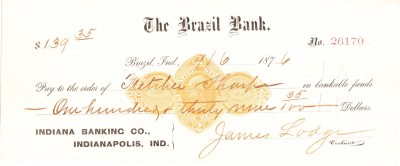 The Brazil Bank.
$139 35
No. 26170
Brazil, Ind., 9/6 1876
Pay to the order of Fletcher & Sharpe in bankable funds
One hundred & thirty nine 35/100 Dollars
INDIANA BANKING CO.,
INDIANAPOLIS, IND.
James Lodge
Cashier